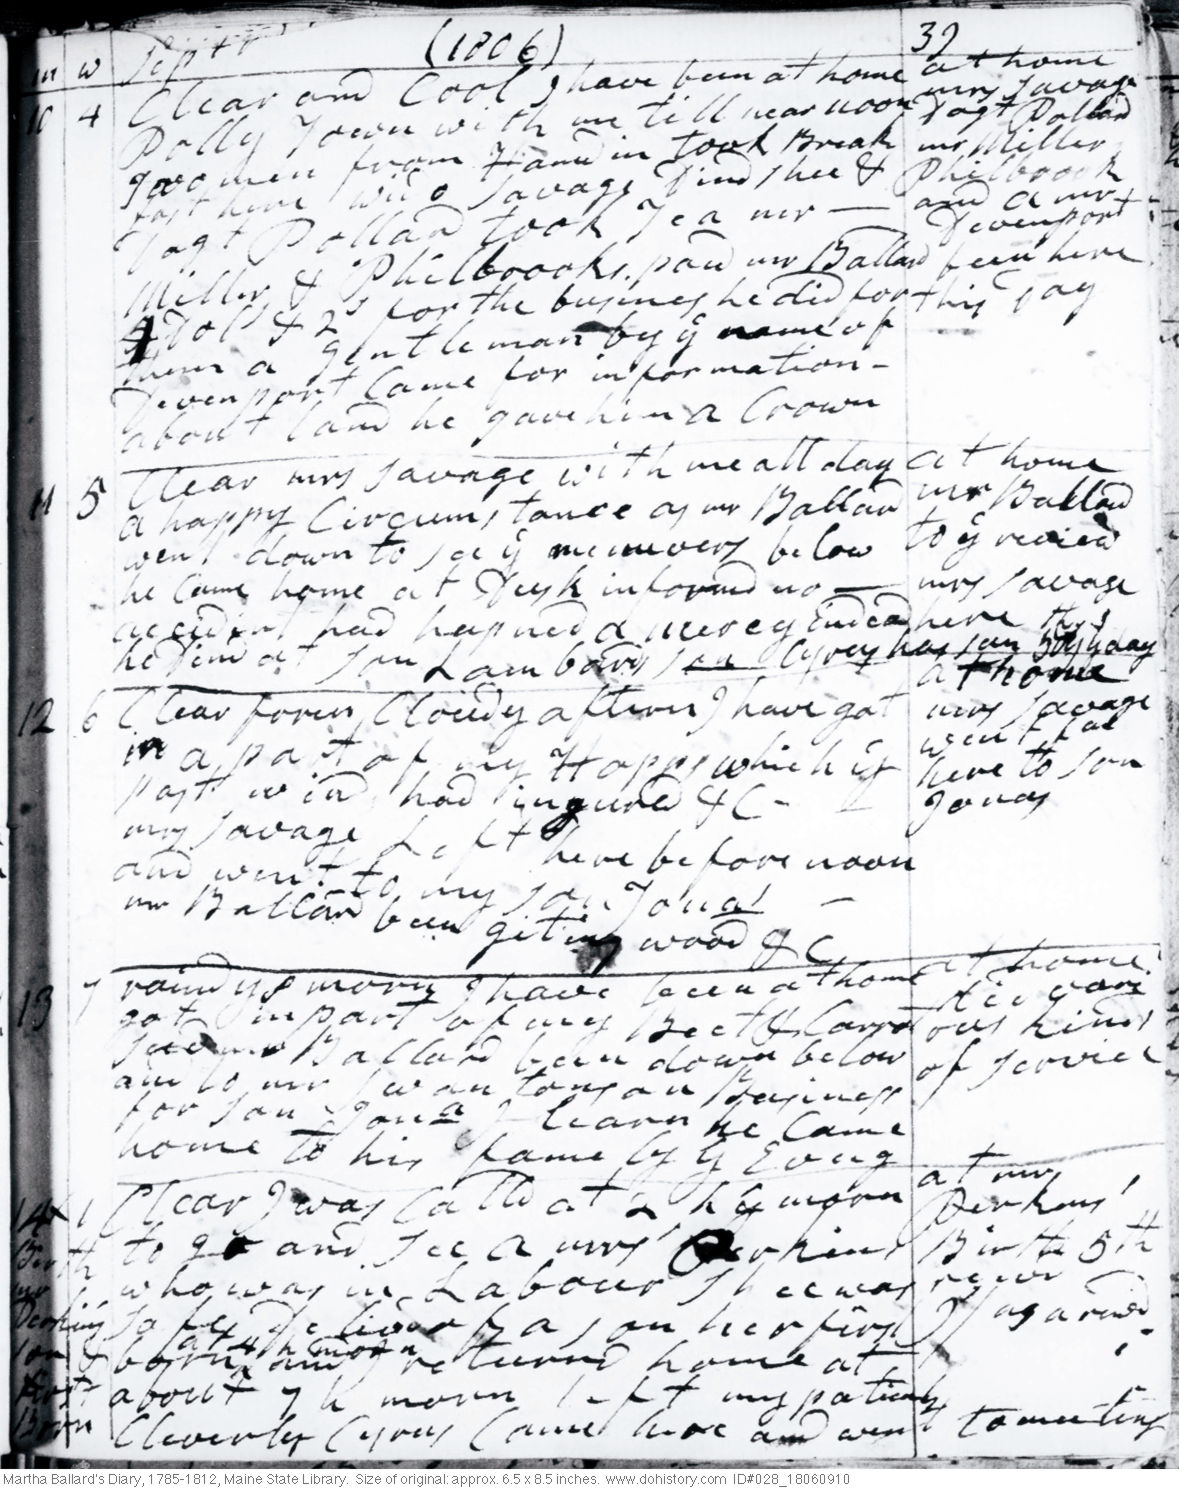 m w Sept r (1806) 39
10 4 Clear and Cool I have been at home
Polly Town with me till near noon
two men from Hamdin took Break
fast here wido Savage Dind shee &
Dagt Pollard took Tea mr —
Miller & Philbrooks. paid mr Ballard
4 Dol & 2 s for the business he did for
them a gentleman by ye name of
Devenport Came for information -
about land he gave him a Crown
at home
mrs Savage
Dagt Pollard
mr Miller
Philbrook
and a mr
Devenport
been here
this Day
11 5 Clear mrs Savage with me all day
a happy Circumstance as mr Ballard
went down to see ye menuvers below
he Came home at Dusk informd no —
accident had hapned a mercy Indead
he Dind at Son Lambards Son Cyrus has son Birthday
at home
mr Ballard
to ye review
mrs Savage
here this
12 6 Clear foren, Cloudy aftern I have got
in a part of my Hopps which ye
past wind had ingured &C -
mrs Savage Left here before noon
and went to my son Jonas —
mr Ballard been geting wood &C
at home
mrs Savage
went from
here to son
Jonas
13 7 rainy morn I have been at home
got In part of my Beets & Carrots
mr Ballard been down below
and to mr Swantons on Business
for son Jona I learn he Came
home to his fame by ye Eveng
at home.
various kinds
of service
14 1 Clear I was Calld at 2 h ye morn
to go and see a mrs Perkins
who was in Labour Shee was
safe Deliverd of a son her first
born at 4 h morn and returnd home at
about 7 h morn left my patient
Cleverly Cyrus Came here and went to meeting
at mrs
Perkins'
Birth 5th
Birth
mr
Perkins
son &
first
Born
Martha Ballard's Diary, 1785-1812, Maine State Library. Size of original: approx. 6.5 x 8.5 inches. www.dohistory.com ID#028_18060910